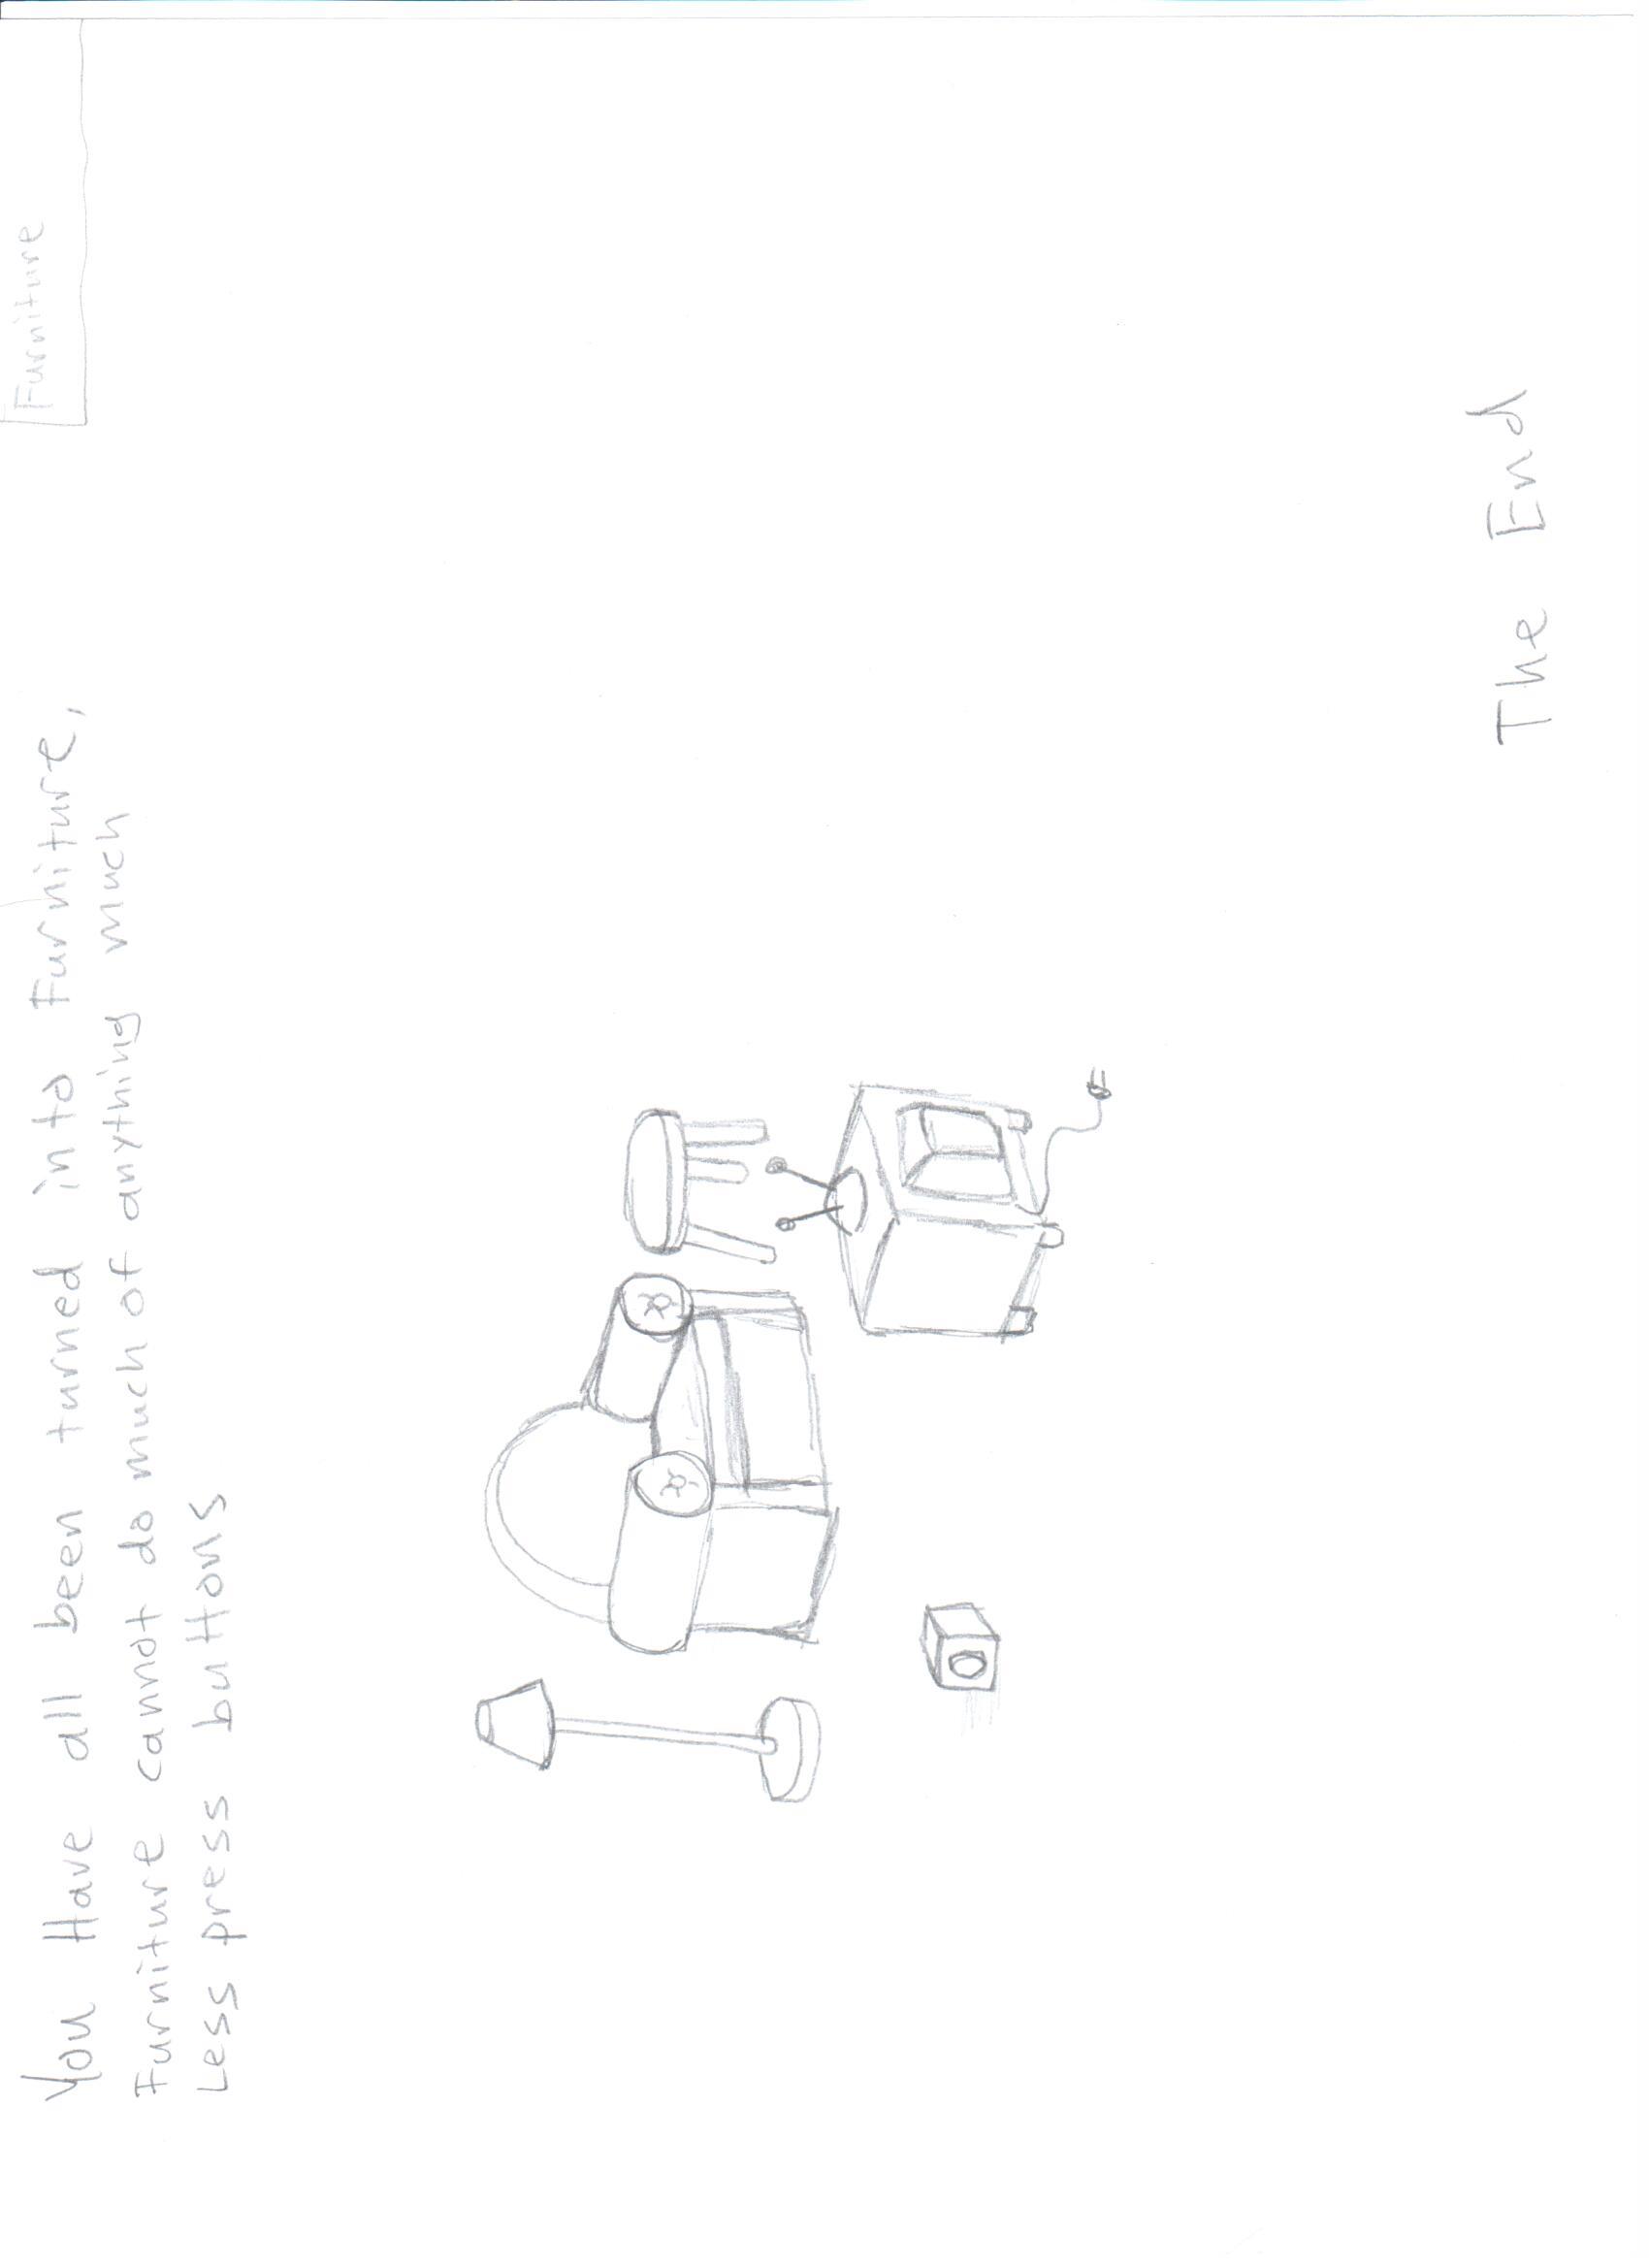 Furniture
You Have all been turned into Furniture,
Furniture cannot do much of anything much
Less press buttons
The End